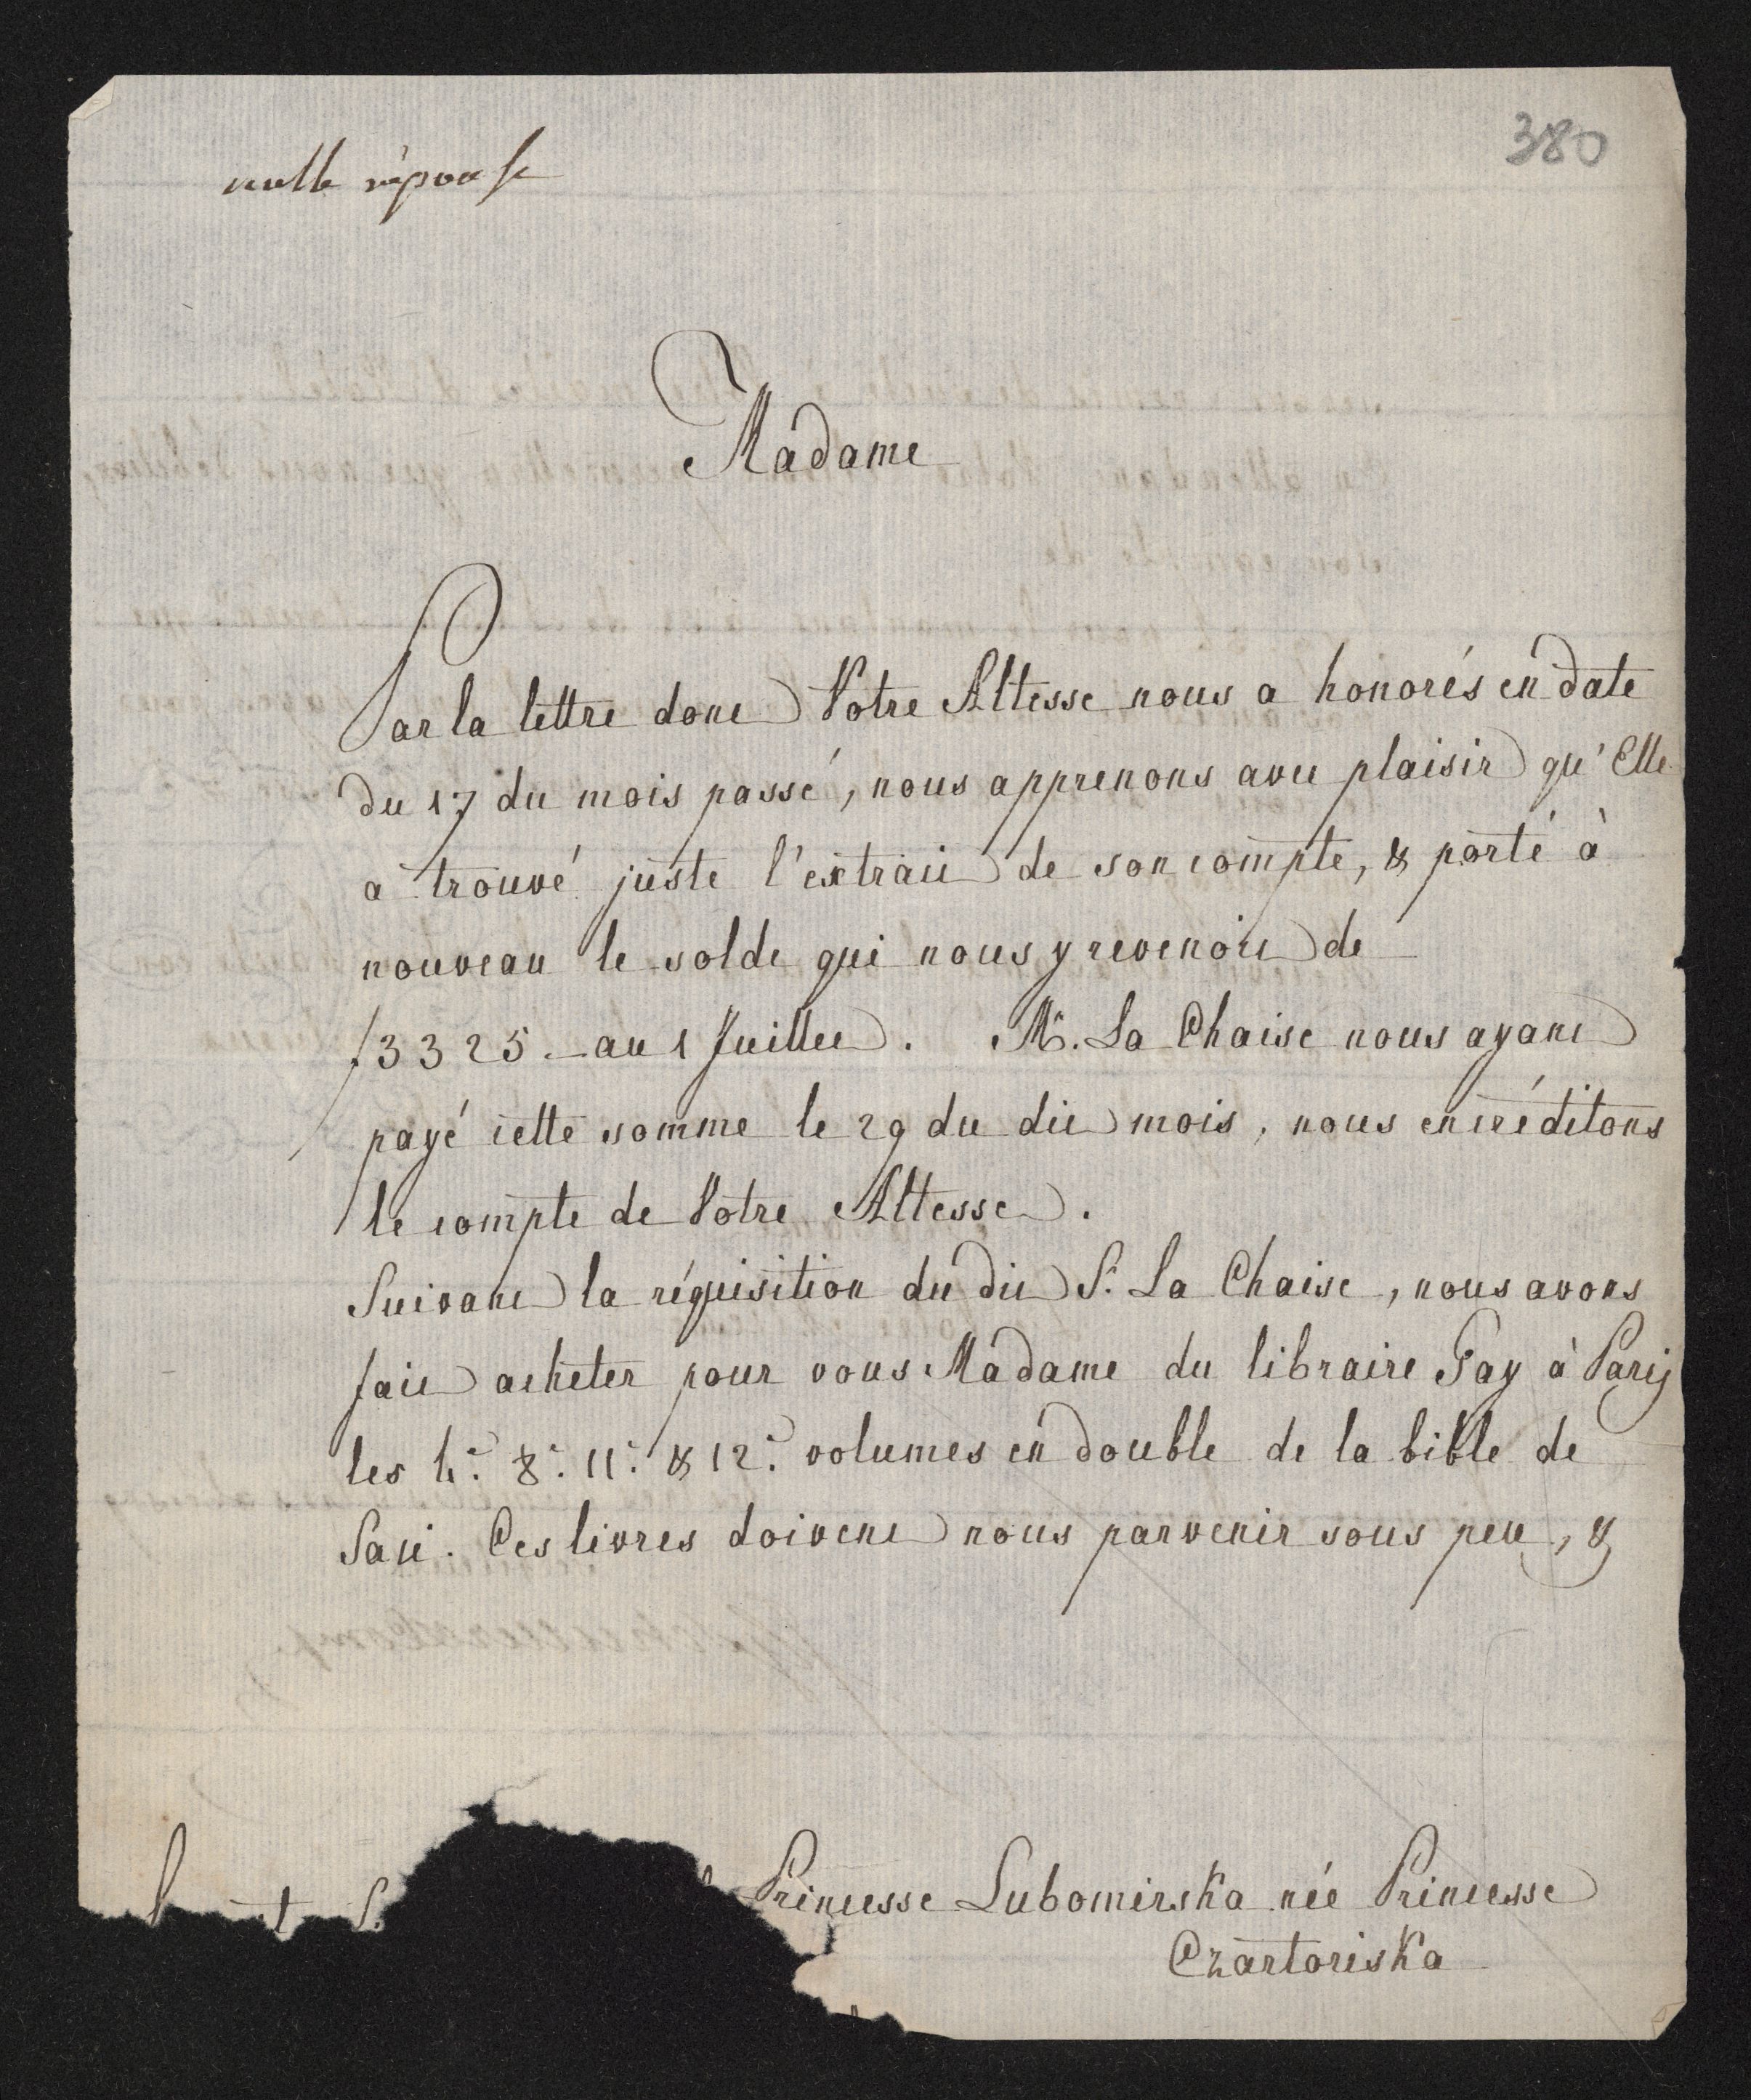 380
nulle réponse
Madame
Par la lettre dont Votre Altesse nous a honorés en date
du 17 du mois passé, nous apprenons avec plaisir qu'Elle
a trouvé juste l'extrait de son compte, & porté à
nouveau le solde qui nous y revenoit de
f 3325.— au 1 Juillet. Mr. La Chaise nous ayant
payé cette somme le 29 du dit mois, nous en créditons
le compte de Votre Altesse.
Suivant la réquisition du dit Sr. La Chaise, nous avons
fait acheter pour vous Madame du libraire Gay à Paris
les 4e. 8e. 11e. & 12e. volumes en double de la bible de
Saci. Ces livres doivent nous parvenir sous peu, &
Princesse Lubomirska née Princesse
Czartoriska